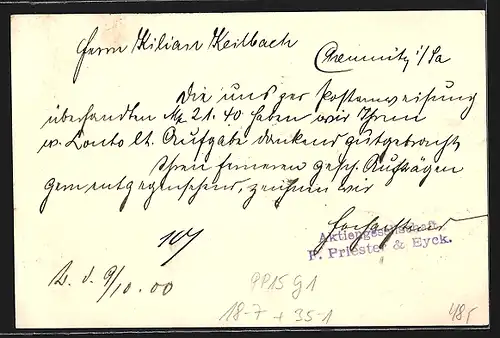 Herrn Kilian Keilbach
Chemnitz i/Sa
Die uns per Postanweisung
übersandten Mk 21.40 haben wir Ihrem
w. Conto lt. Aufgabe dankend gutgebracht
Ihren ferneren gesch. Aufträgen
gern entgegensehend, zeichnen wir
hochachtend
Aktiengesellschaft
P. Priester & Eyck.
L. d. 9/10.00
PP15 G1
18-7 + 35-1
485